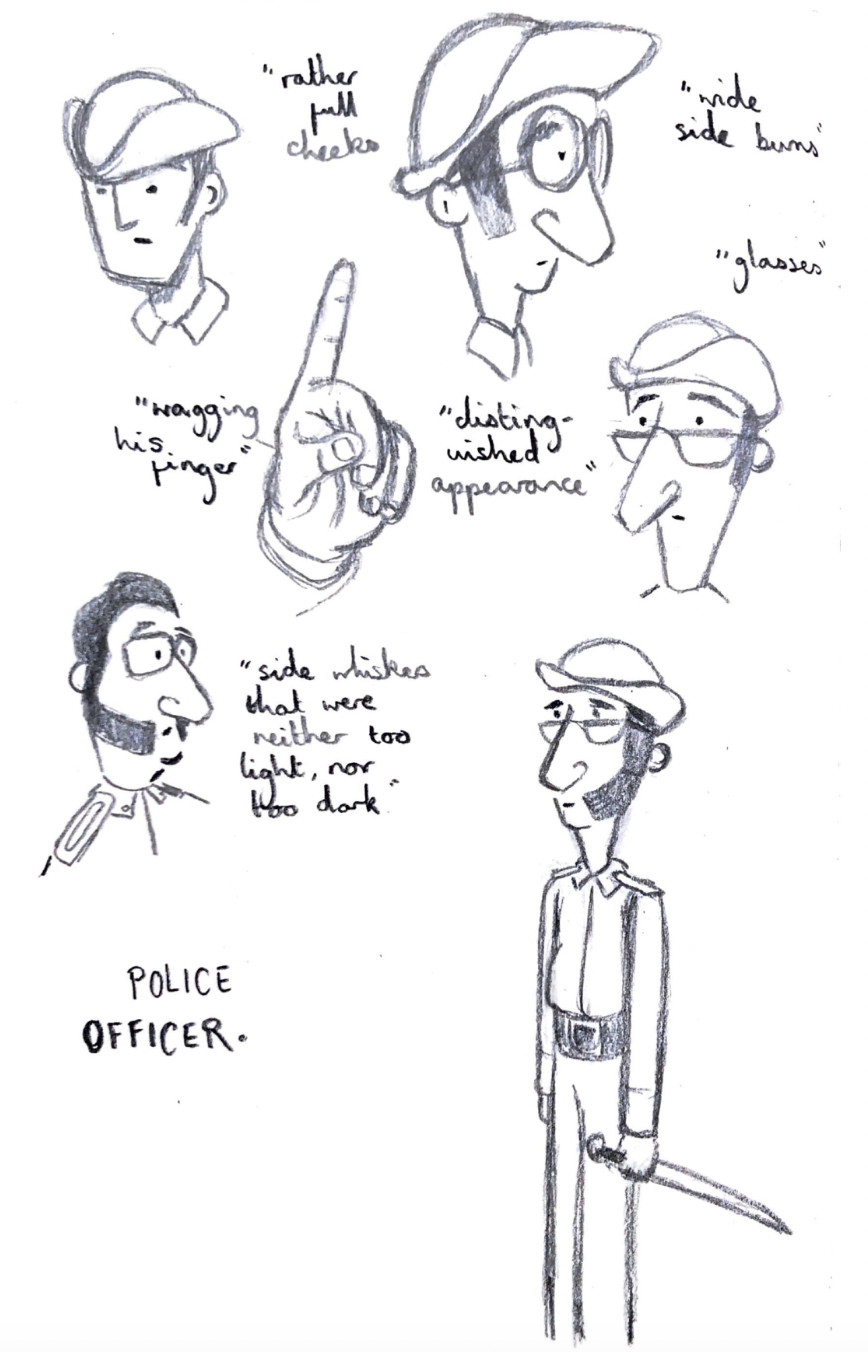 "rather
full
cheeks
"wide
side burns"
"glasses"
"wagging
his
finger"
"disting-
uished
appearance"
"side whiskes
that were
neither too
light, nor
too dark"
POLICE
OFFICER.